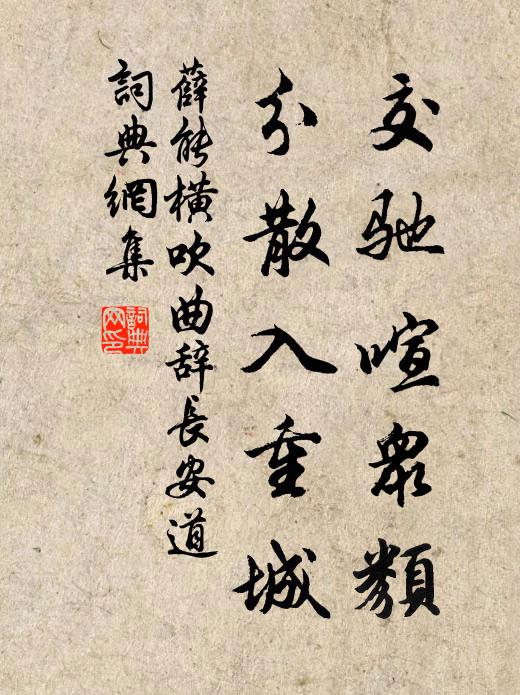 交馳喧眾類
分散入重城
薛能橫吹曲辞長安道
詞典網集
詞典
网印